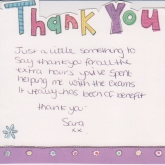 Thank You
Just a little something to
say thankyou for all the
extra hours you've spent
helping me with the Exams
It really has been of benefit
thank you
Sara
xx